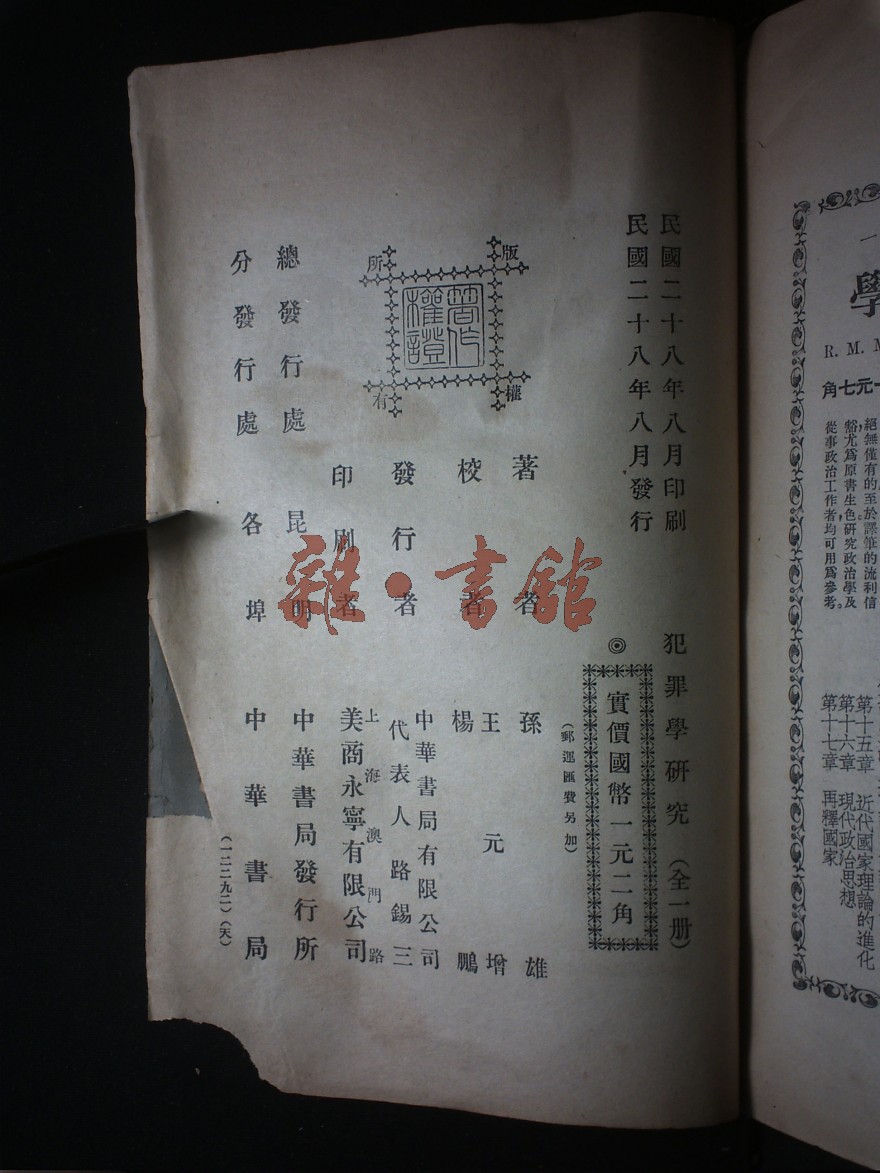 民國二十八年八月印刷
民國二十八年八月發行
犯罪學研究(全一册)
◎
實價國幣一元二角
(郵運匯費另加)
著者 孫雄
校者 王元增
楊鵬
發行者 中華書局有限公司
代表人路錫三
印刷者 上海澳門路
美商永寧有限公司
總發行處 昆明 中華書局發行所
分發行處 各埠 中華書局
(一二二九二)(天)
版權所有
著作權證
雜·書館
一
學
R. M. M
一元七角
絕無僅有的至於譯筆的流利信
豁尤爲原書生色研究政治學及
從事政治工作者均可用爲參考。
第十五章 近代國家理論的進化
第十六章 現代政治思想
第十七章 再釋國家